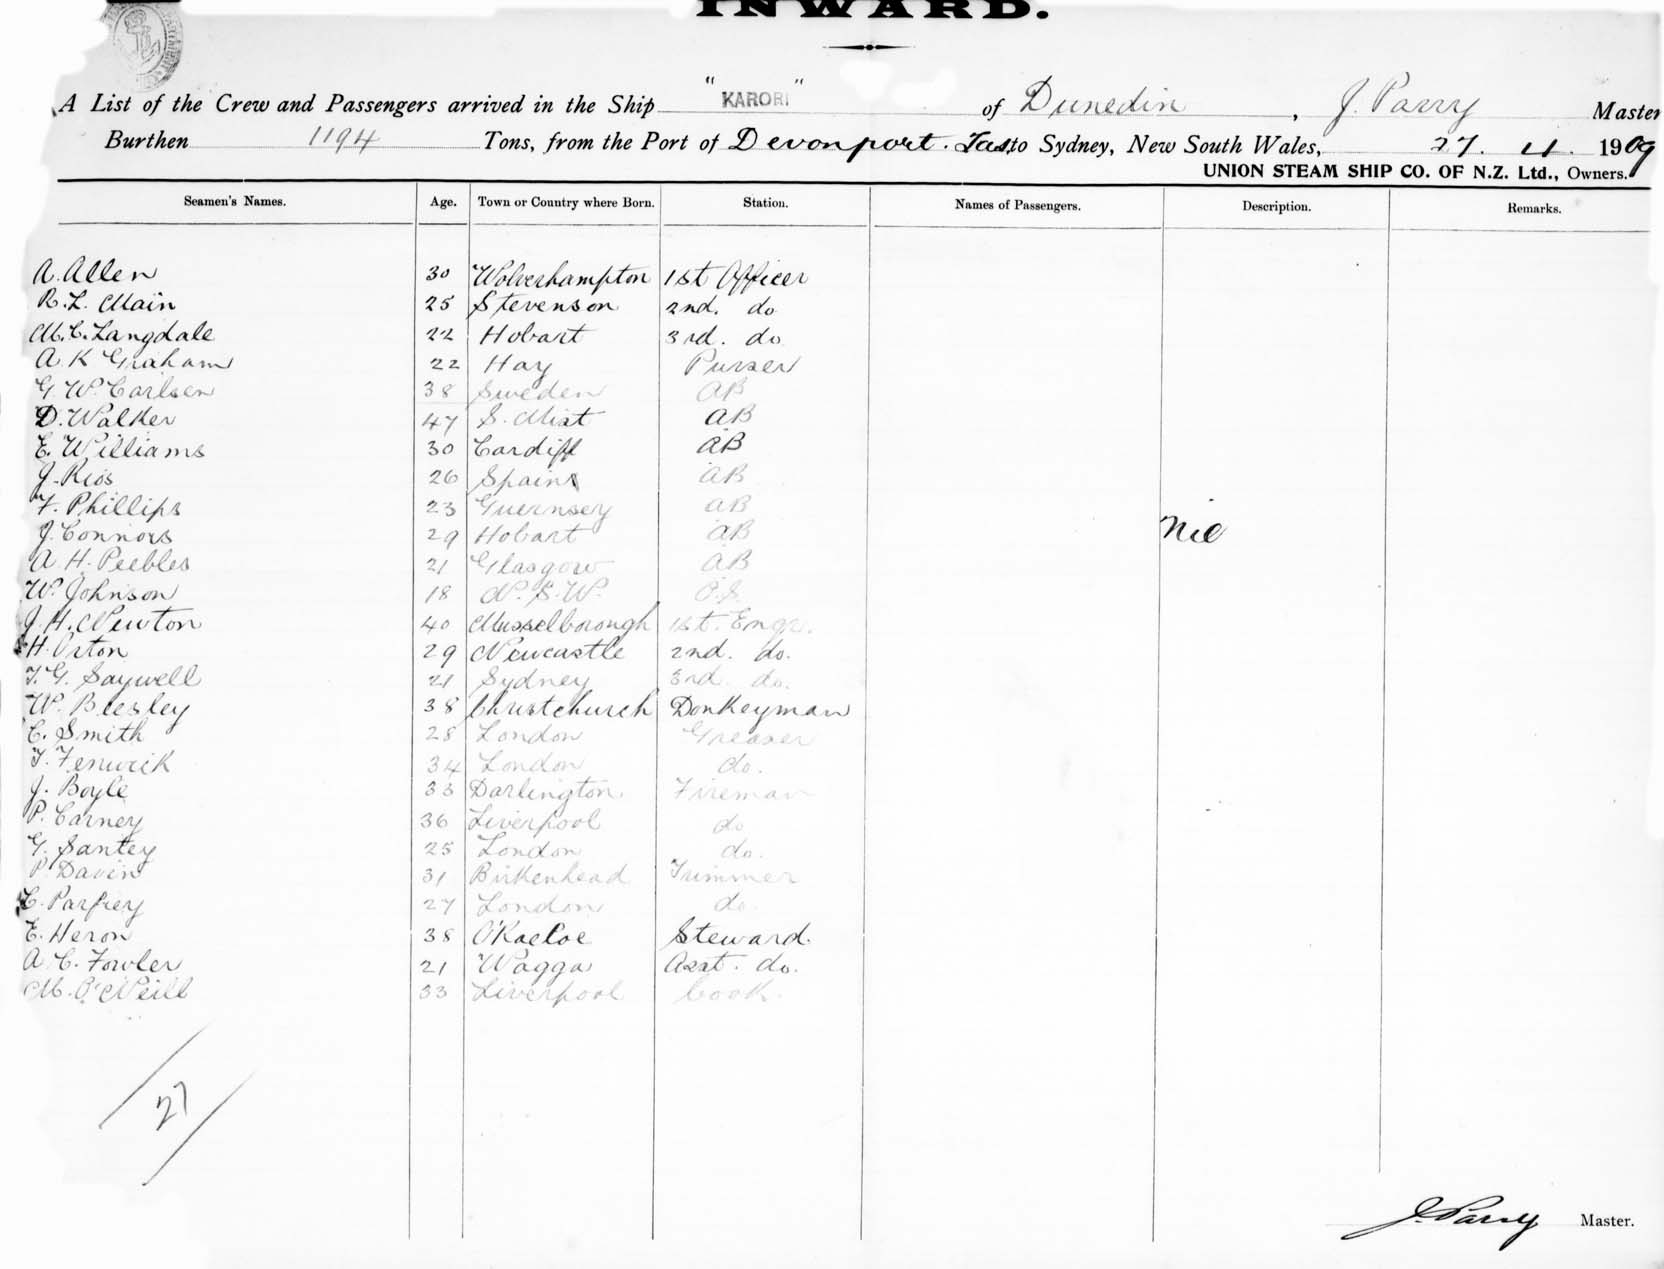 INWARD.
A List of the Crew and Passengers arrived in the Ship "KARORI" of Dunedin, J. Parry Master
Burthen 1194 Tons, from the Port of Devonport. Tas. to Sydney, New South Wales, 27. 11. 1909
UNION STEAM SHIP CO. OF N.Z. Ltd., Owners.
Seamen's Names. Age. Town or Country where Born. Station. Names of Passengers. Description. Remarks.
A. Allen 30 Wolverhampton 1st Officer
R. L. Main 25 Stevenson 2nd. do
M. C. Langdale 22 Hobart 3rd. do
A K Graham 22 Hay Purser
G. W. Carlsen 38 Sweden AB
D. Walker 47 S. Mist AB
E. Williams 30 Cardiff AB
J. Rios 26 Spain AB
F. Phillips 23 Guernsey AB
Nil
J. Connors 29 Hobart AB
A. H. Peebles 21 Glasgow AB
W. Johnson 18 N. S. W. O.S.
J. H. Newton 40 Musselborough 1st. Engr.
H. Orton 29 Newcastle 2nd. do.
T. G. Saywell 21 Sydney 3rd do.
W. Beesley 38 Christchurch Donkeyman
C. Smith 28 London Greaser
T. Fenwick 34 London do.
J. Boyle 33 Darlington Fireman
P. Carney 36 Liverpool do
G. Santey 25 London do.
P Davin 31 Birkenhead Trimmer
C. 27 London do.
E. Heron 38 Steward.
A. C. Fowler 21 Wagga Asst. do.
M. O'Neill 33 Liverpool Cook.
27
J. Parry Master.